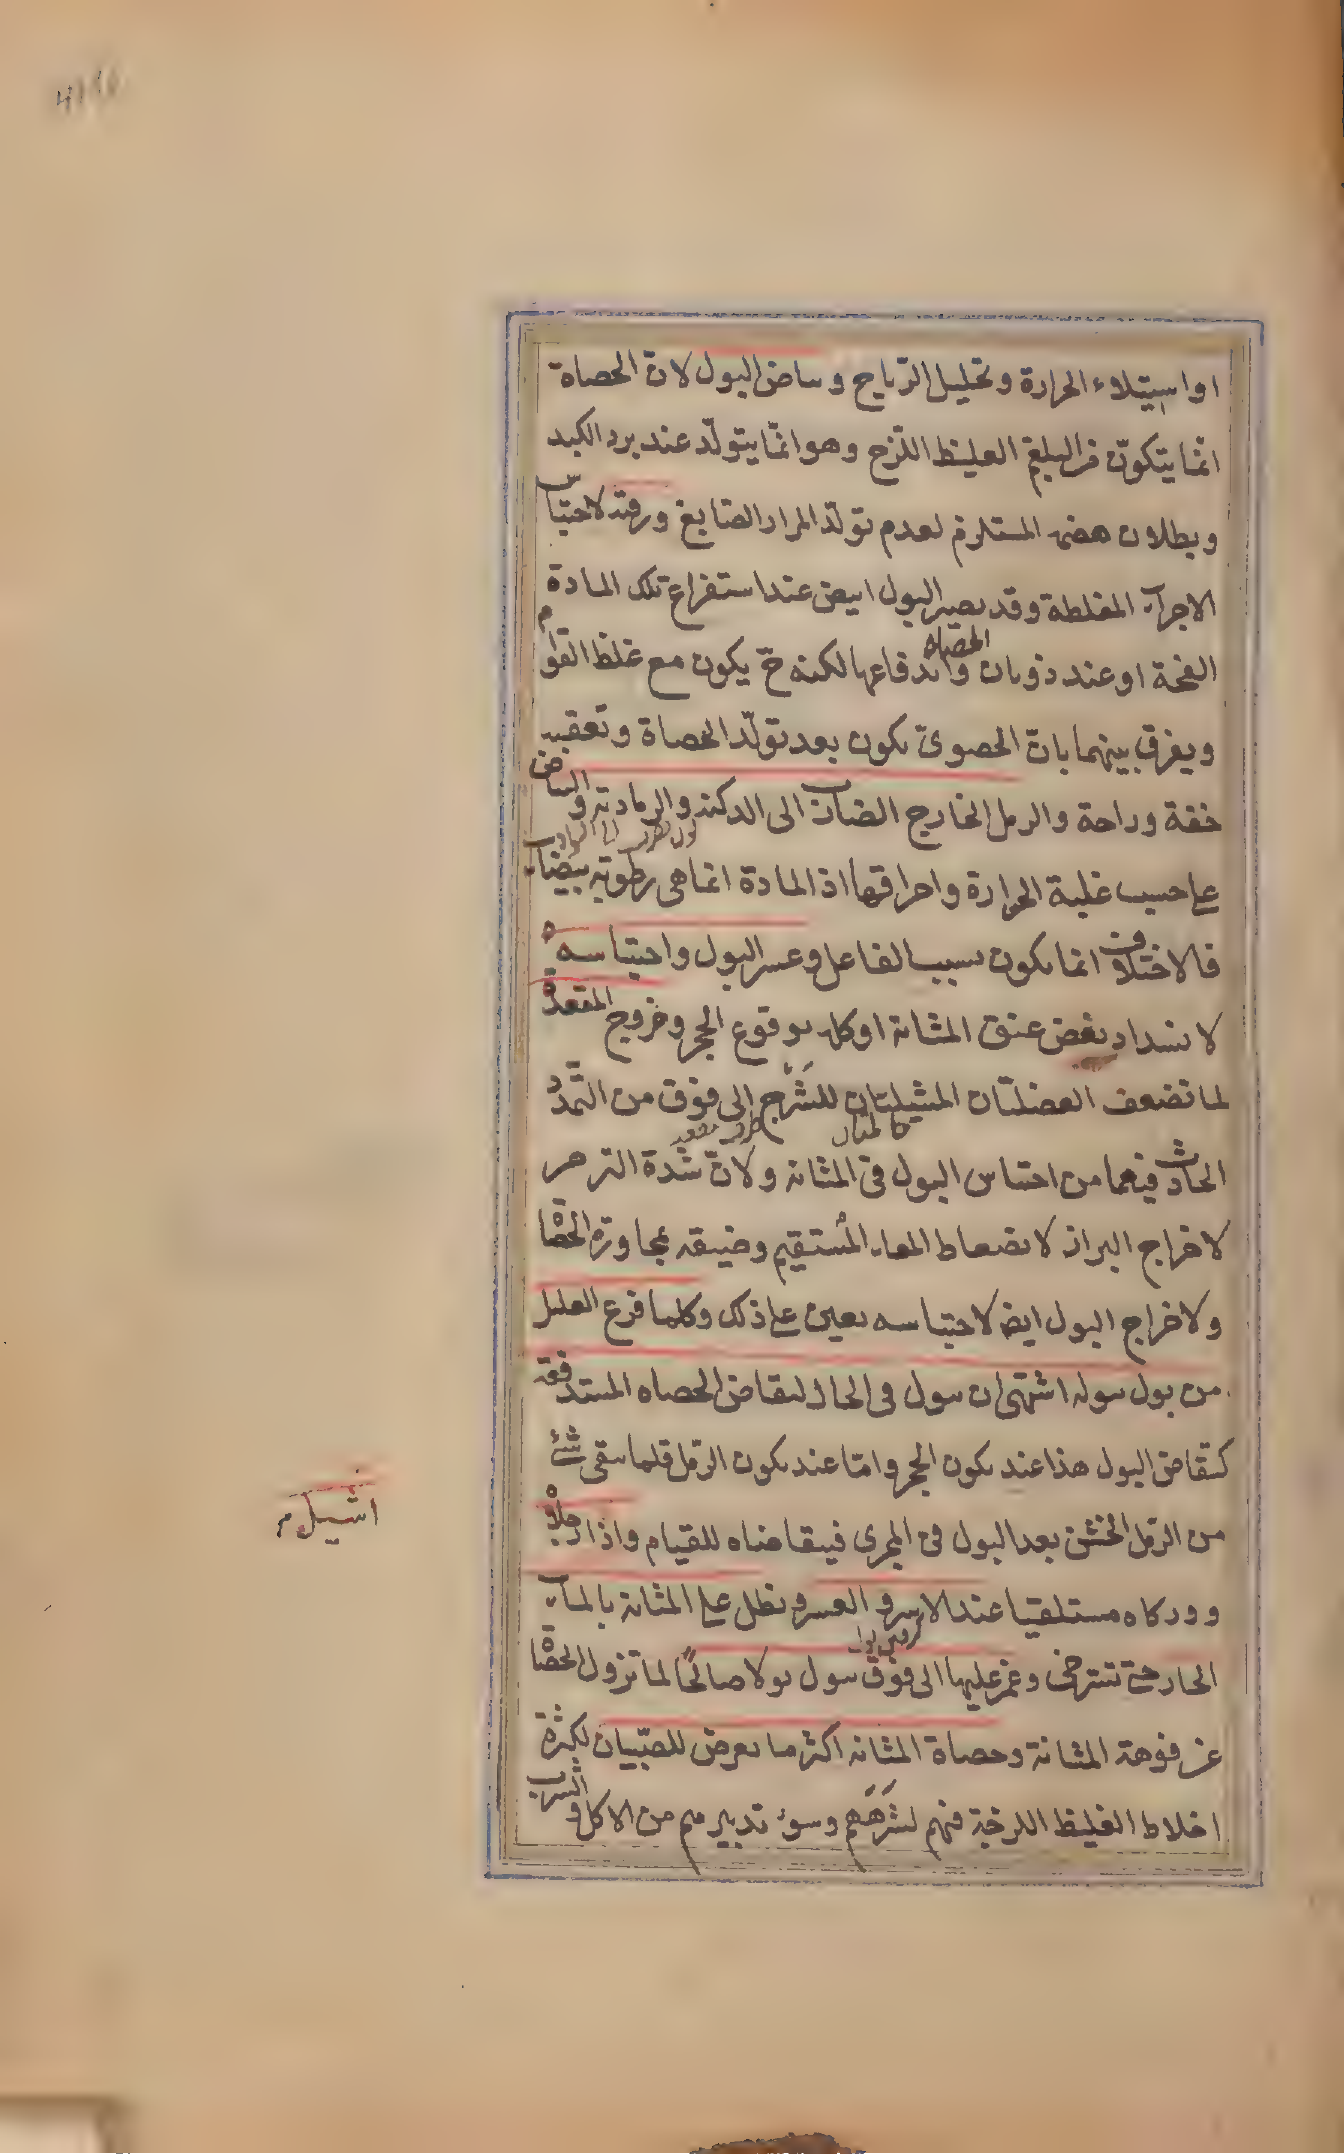 او استيلاء الحرارة وتحليل الرياح وبياض البول لان الحصاة
انما يتكون من البلغم الغليظ اللزج وهو انما يتولد عند برد الكبد
وبطلان هضمه المستلزم لعدم تولد المرار الصابغ ورقته لاحتباس
الاجزاء المغلظة وقد يصير البول ابيض عند استفراغ تلك المادة
الفجة او عند ذوبان الحصاة واندفاعها لكنه ح يكون مع غلظ القوام
ويفرق بينهما بان الحصوى يكون بعد تولد الحصاة وتعقبه
خفة وراحة والرمل الخارج الضارب الى الدكنة والرمادية والبياض
على حسب غلبة الحرارة واحراقها اذ المادة انما هى رطوبة بيضاء
فالاختلاف انما يكون بسبب الفاعل وعسر البول واحتباسه
لانسداد بعض عنق المثانة او كله بوقوع الحجر وخروج المقعدة
لما تضعف العضلتان المشيلتان للشرج الى فوق من التمدد
الحادث فيهما من احتباس البول فى المثانة ولان شدة التزحر
لاخراج البراز لانضغاط المعاء المستقيم وضيقه بمجاورة الحصاة
ولاخراج البول ايضا لاحتباسه يعين على ذلك وكلما فرغ العليل
من بول يبوله اشتهى ان يبول فى الحال لتقاضى الحصاة المستدفعة
كتقاضى البول هذا عند تكون الحجر واما عند تكون الرمل قلما يبقى شئ
من الرمل الخشن بعد البول فى المجرى فيتقاضاه للقيام واذا
اشيل م
رجلاه
ووركاه مستلقيا عند الاسر والعسر ونطل على المثانة بالماء
الحار حتى تسترخى وغمز عليها الى فوق يبول بولا صالحا لما تزول الحصاة
عن فوهة المثانة وحصاة المثانة اكثر ما يعرض للصبيان لكثرة
اخلاط الغليظ اللزجة فيهم لشرههم وسوء تدبيرهم من الاكل والشرب